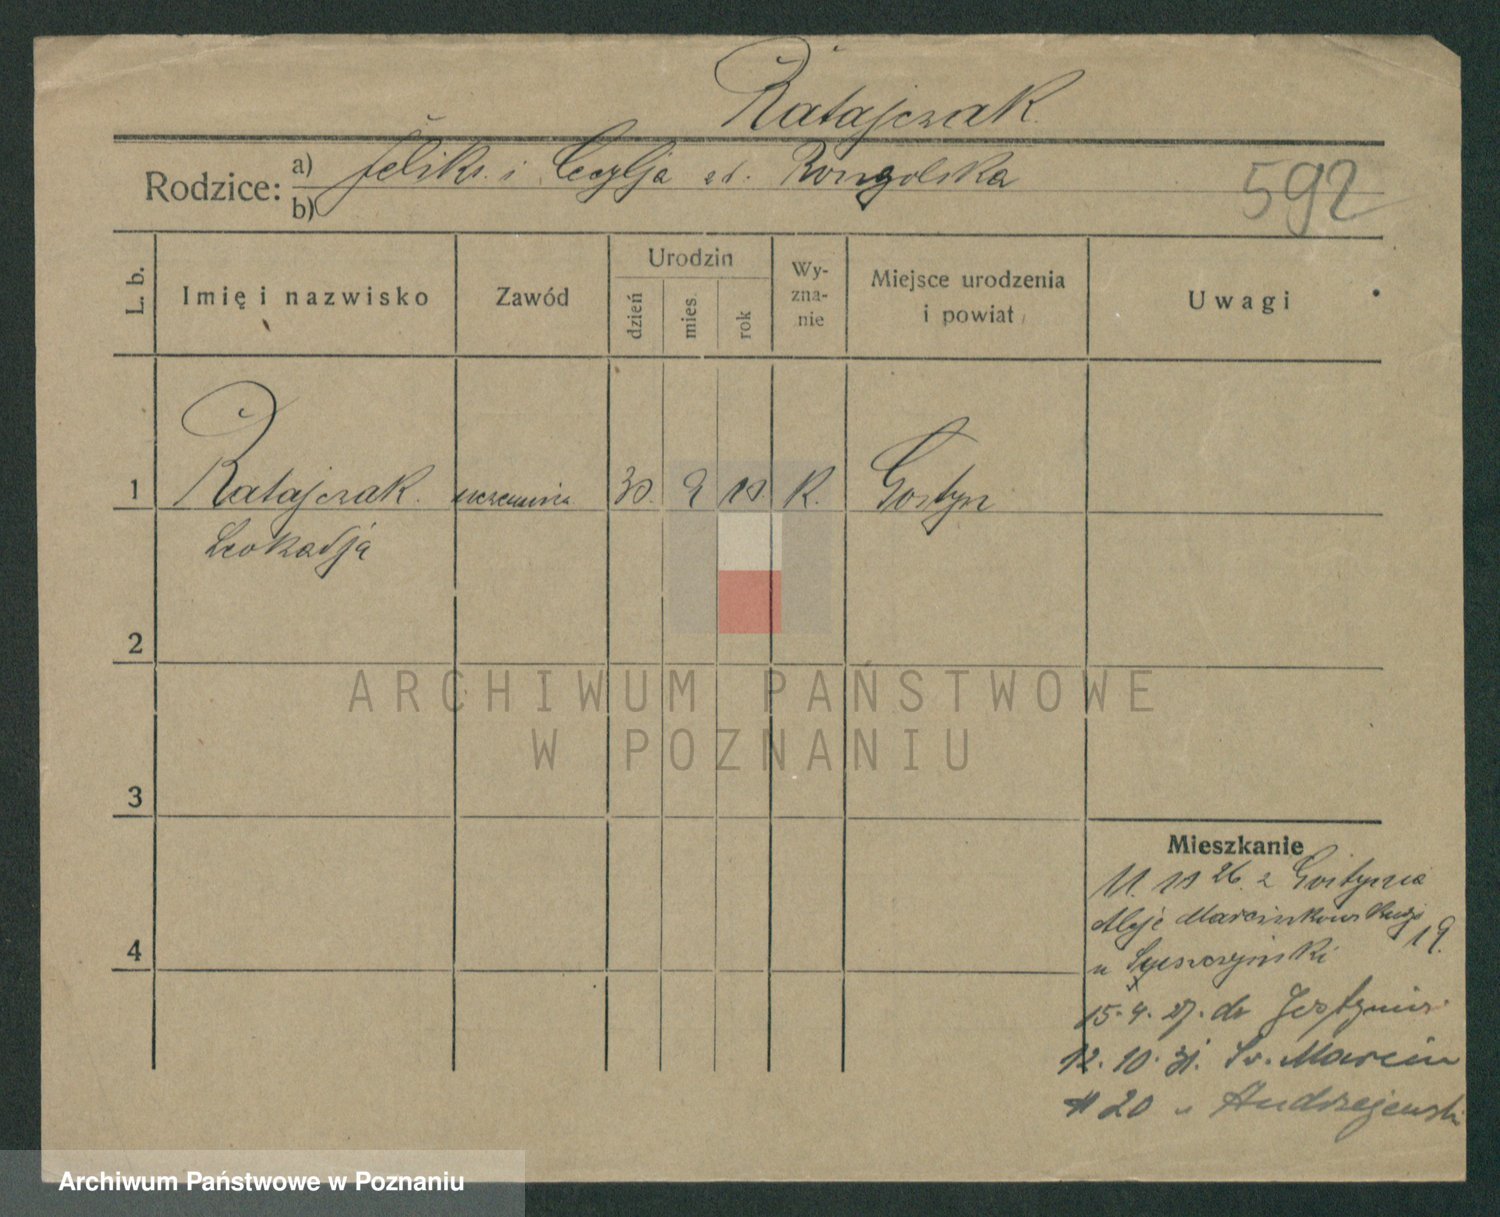 Ratajczak
Rodzice: a) Feliks i Cecylja
b)
592
L. b.
Imię i nazwisko
Zawód
Urodzin
dzień
mies.
rok
Wy-
zna-
nie
Miejsce urodzenia
i powiat
Uwagi
1 Ratajczak uczennica 30. 9 10. K. Gostyn
Leokadja
2
3
4
ARCHIWUM PAŃSTWOWE
W POZNANIU
Mieszkanie
11. 11 26. z Gostynia
Aleje Marcinkowskiego
19.
u
15. 4. 27. do
12. 10. 31. Św. Marcin
20 u Andrzejewski
Archiwum Państwowe w Poznaniu